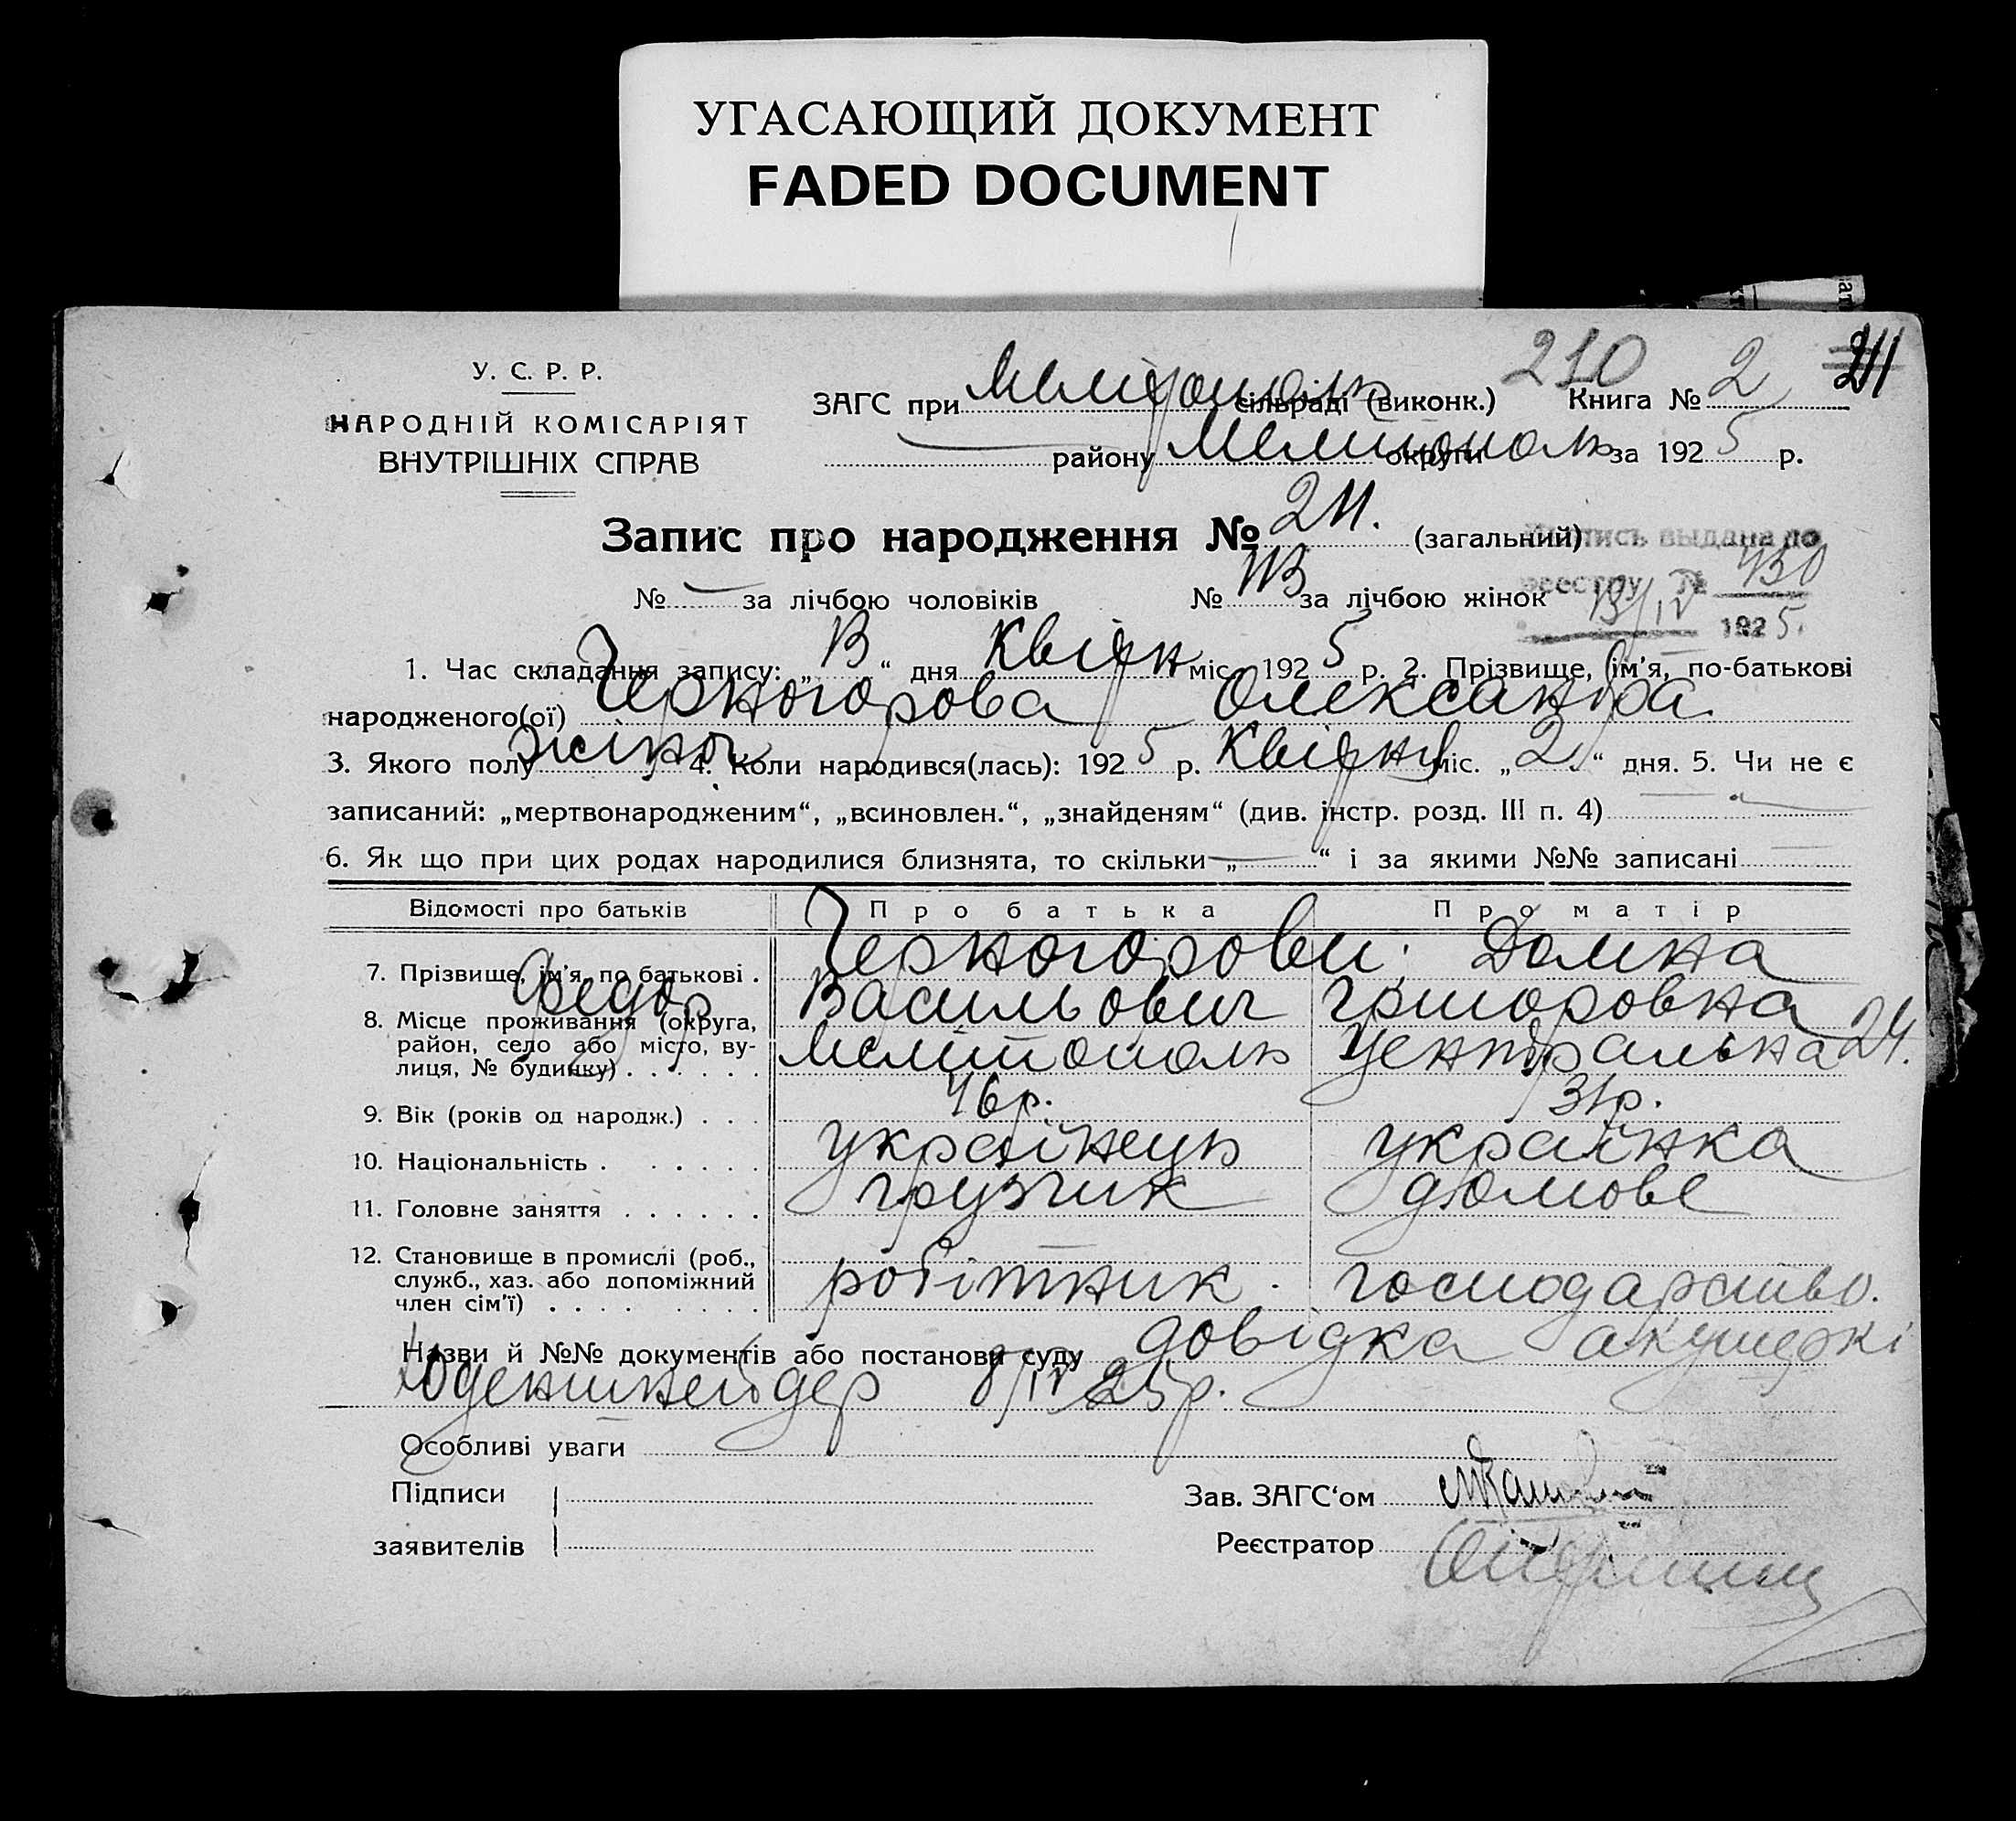 УГАСАЮЩИЙ ДОКУМЕНТ
FADED DOCUMENT
210
211
У. С. Р. Р.
НАРОДНІЙ КОМІСАРІЯТ
ВНУТРІШНІХ СПРАВ
ЗАГС при Мелітополь сільраді (виконк.) Книга № 2
району Мелітополь округи за 1925 р.
Запис про народження № 211. (загальний)
Выпись выдана по
реестру № 430
13/IV 1925.
№ — за лічбою чоловіків № 113 за лічбою жінок
1. Час складання запису: „13“ дня Квітн міс. 1925 р. 2. Прізвище, ім'я, по-батькові
народженого(ої) Черногорова Олександра.
3. Якого полу жіноч. 4. Коли народився(лась): 1925 р. Квітня міс. „2“ дня. 5. Чи не є
записаний: „мертвонародженим“, „всиновлен.“, „знайденям“ (див. інстр. розд. III п. 4)
6. Як що при цих родах народилися близнята, то скільки „—“ і за якими №№ записані
Відомості про батьків Про батька Про матір
7. Прізвище, ім'я, по батькові . Черногорови. Домна
Федор Васильович Григоровна
8. Місце проживання (округа,
район, село або місто, ву-
лиця, № будинку) . . . . . . Мелітополь Центральна 24.
9. Вік (років од народж.) . . . 46р. 31р.
10. Національність . . . . . . українець українка
11. Головне заняття . . . . . . грузчик домове
12. Становище в промислі (роб.,
служб., хаз. або допоміжний
член сім'ї) . . . . . . . . робітник. господарство.
Назви й №№ документів або постанови суду довідка акушеркі
Юденшнейдер 8/IV 25р.
Особливі уваги
Підписи
заявителів
Зав. ЗАГС‘ом
Реєстратор